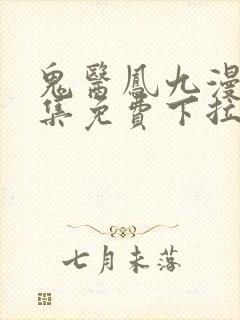 鬼醫鳳九漫
集免費下拉
七月未落